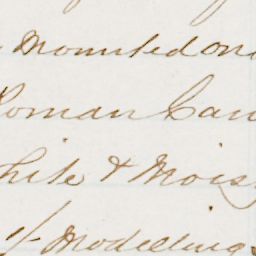 mounted on
Roman Cam
hite & Mois
of Modelling